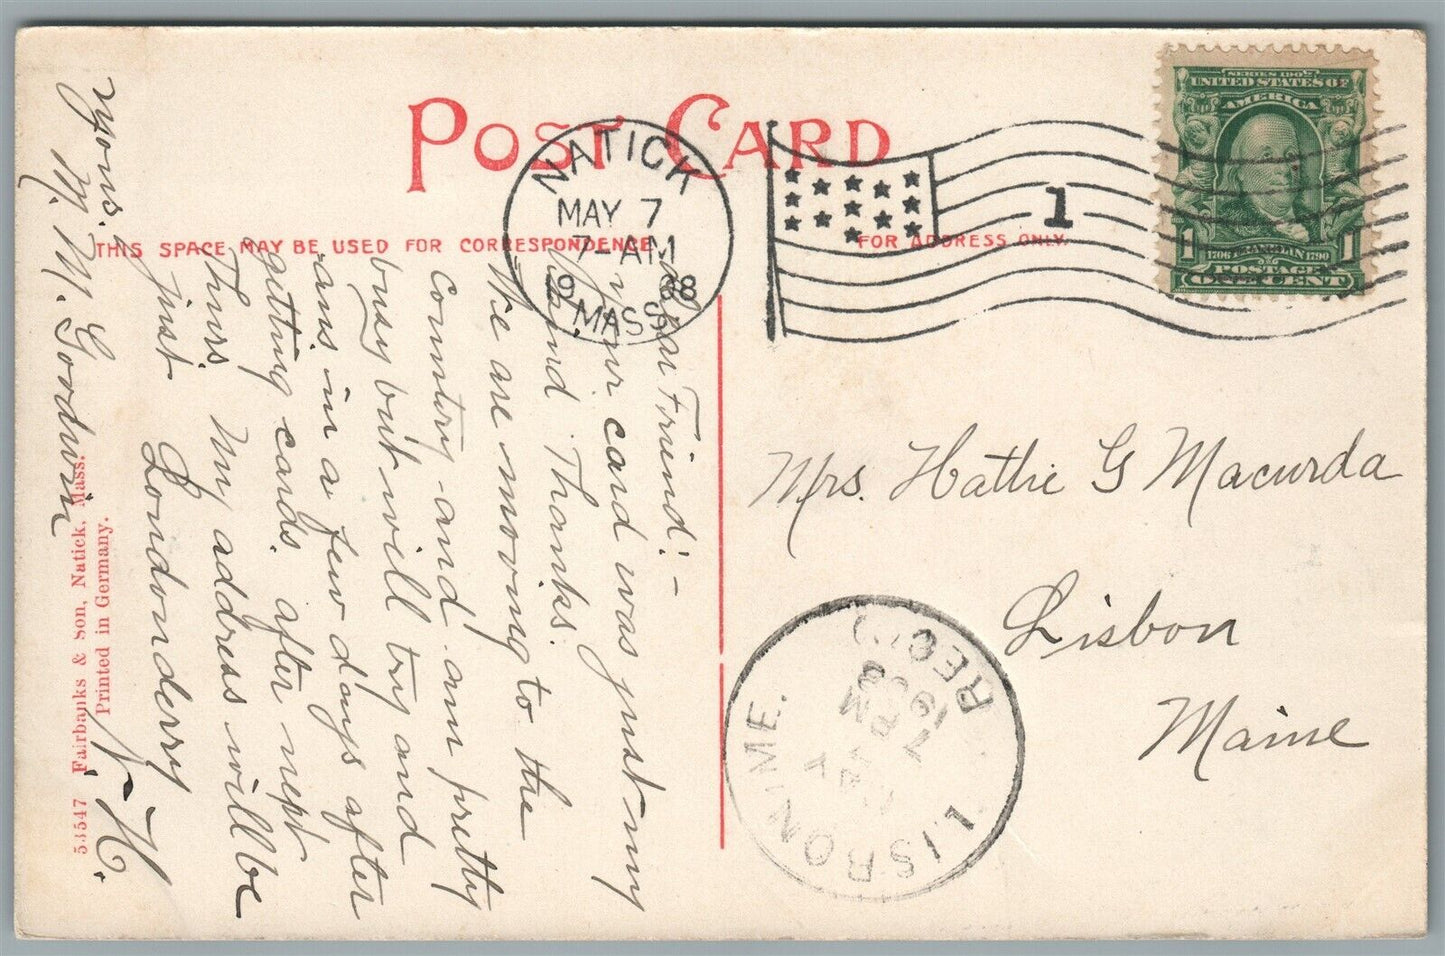 POST CARD
THIS SPACE MAY BE USED FOR CORRESPONDENCE
FOR ADDRESS ONLY.
NATICK
MAY 7
7-AM
1908
MASS.
1
SERIES 1902
UNITED STATES OF
AMERICA
1 FRANKLIN 1
1706 1790
POSTAGE
ONE CENT
Dear Friend! -
Your card was just my
mind. Thanks.
We are moving to the
country and am pretty
busy but will try and
ans in a few days after
getting cards. after next
Thurs. My address will be
just Londonderry
N. H.
Yours.
M. M. Gordwin
Mrs. Hattie G Macurda
Lisbon
Maine
LISBON ME.
MAY
7
PM
1908
REC'D
53547 Fairbanks & Son, Natick, Mass.
Printed in Germany.